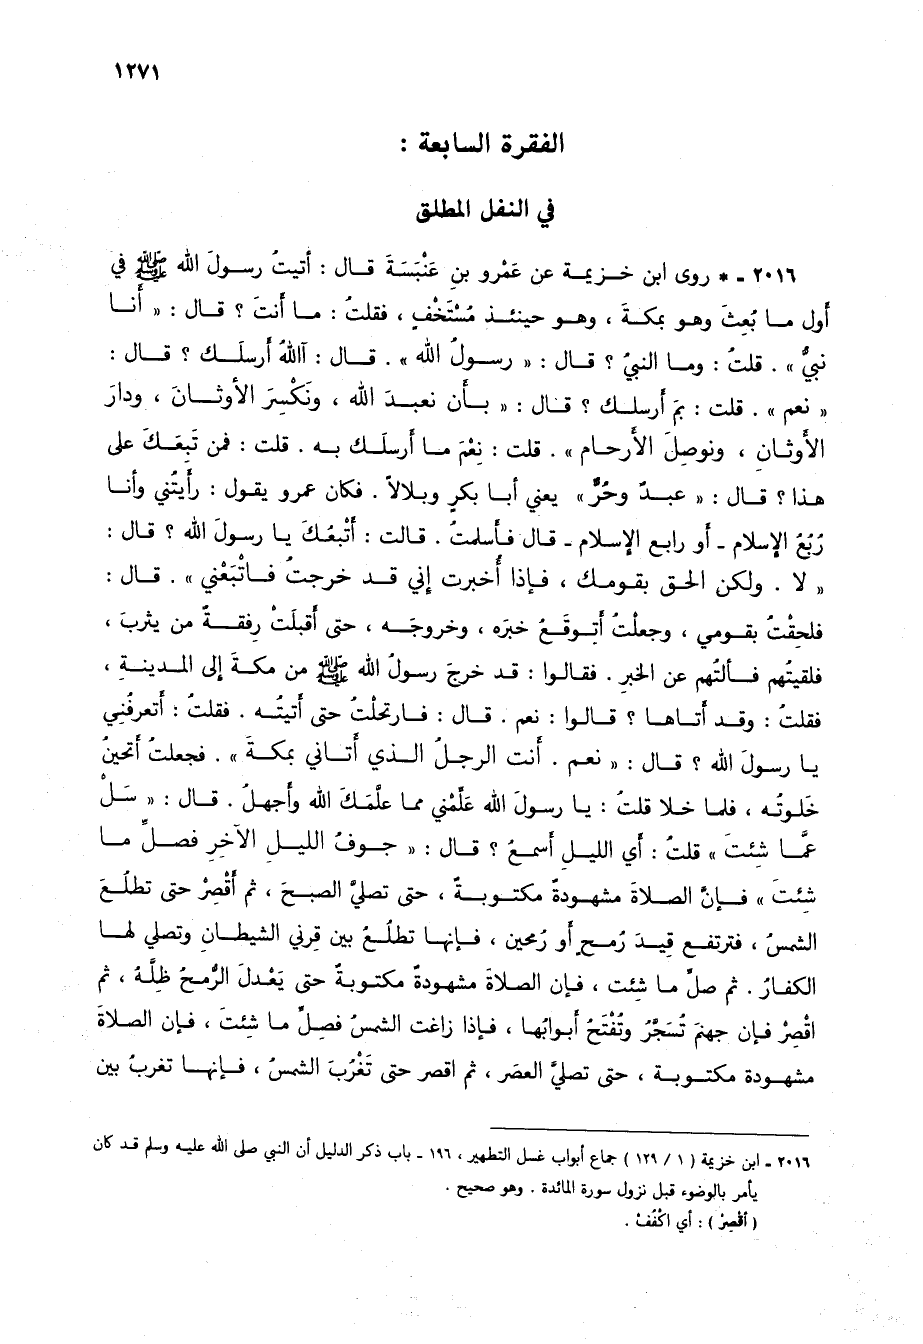 ١٢٧١
الفقرة السابعة :
في النفل المطلق
٢٠١٦ - * روى ابن خزيمة عن عَمْرو بن عَنْبَسَةَ قال : أتيتُ رسولَ الله ﷺ في
أول ما بُعثَ وهو بمكةَ ، وهو حينئذ مُسْتَخْفٍ ، فقلتُ : ما أنتَ ؟ قال : « أنا
نبيٌّ » . قلتُ : وما النبيُ ؟ قال : « رسولُ الله » . قال : آاللهُ أرسلَك ؟ قال :
« نعم » . قلت : بمَ أرسلك ؟ قال : « بأن نعبدَ الله ، ونَكْسِرَ الأوثانَ ، ودارَ
الأوثان ، ونوصلَ الأرحام » . قلت : نِعْمَ ما أرسلَك به . قلت : فمن تَبِعَكَ على
هذا ؟ قال : « عبدٌ وحُرٌّ » يعني أبا بكرٍ وبلالاً . فكان عمرو يقول : رأيتُني وأنا
رُبُعُ الإسلام - أو رابع الإسلام - قال فأسلمتُ . قالت : أتْبَعُكَ يا رسولَ الله ؟ قال :
« لا . ولكن الحق بقومك ، فإذا أُخبرت إني قد خرجتُ فاتْبَعْني » . قال :
فلحقتُ بقومي ، وجعلْتُ أتوقَعُ خبرَه ، وخروجَه ، حتى أقبلَتْ رفقةٌ من يثربَ ،
فلقيتُهم فسألتُهم عن الخبرِ . فقالوا : قد خرجَ رسولُ الله ﷺ من مكةَ إلى المدينة ،
فقلتُ : وقد أتاها ؟ قالوا : نعم . قال : فارتحلْتُ حتى أتيتُه . فقلتُ : أتعرفُني
يا رسولَ الله ؟ قال : « نعم . أنت الرجلُ الذي أتاني بمكةَ » . فجعلتُ أتحينُ
خَلوتُه ، فلما خلا قلتُ : يا رسولَ الله علّمْني مما علّمَكَ الله وأجهلُ . قال : « سَلْ
عمَّا شئتَ » قلتُ : أي الليل أسمعُ ؟ قال : « جوفُ الليل الآخر فصلِّ ما
شئتَ » فإنَّ الصلاةَ مشهودةٌ مكتوبةٌ ، حتى تصليَّ الصبحَ ، ثم أقْصِرْ حتى تطلُعَ
الشمسُ ، فترتفع قيدَ رُمحٍ أو رُمحين ، فإنها تطلُعُ بين قرني الشيطان وتصلي لها
الكفارُ . ثم صلِّ ما شئت ، فإن الصلاةَ مشهودةٌ مكتوبةٌ حتى يَعْدلَ الرُّمحُ ظلَّهُ ، ثم
اقْصِرْ فإن جهنمَ تُسَجَّرُ وتُفْتَحُ أبوابُها ، فإذا زاغت الشمسُ فصلِّ ما شئتَ ، فإن الصلاةَ
مشهودة مكتوبة ، حتى تصليَّ العصَر ، ثم اقصر حتى تَغْرُبَ الشمسُ ، فإنها تغربُ بين
٢٠١٦ - ابن خزيمة ( ١ / ١٢٩ ) جماع أبواب غسل التطهير ، ١٩٦ - باب ذكر الدليل أن النبي صلى الله عليه وسلم قد كان
يأمر بالوضوء قبل نزول سورة المائدة . وهو صحيح .
( أقْصِرْ ) : أي اكْفُفْ .